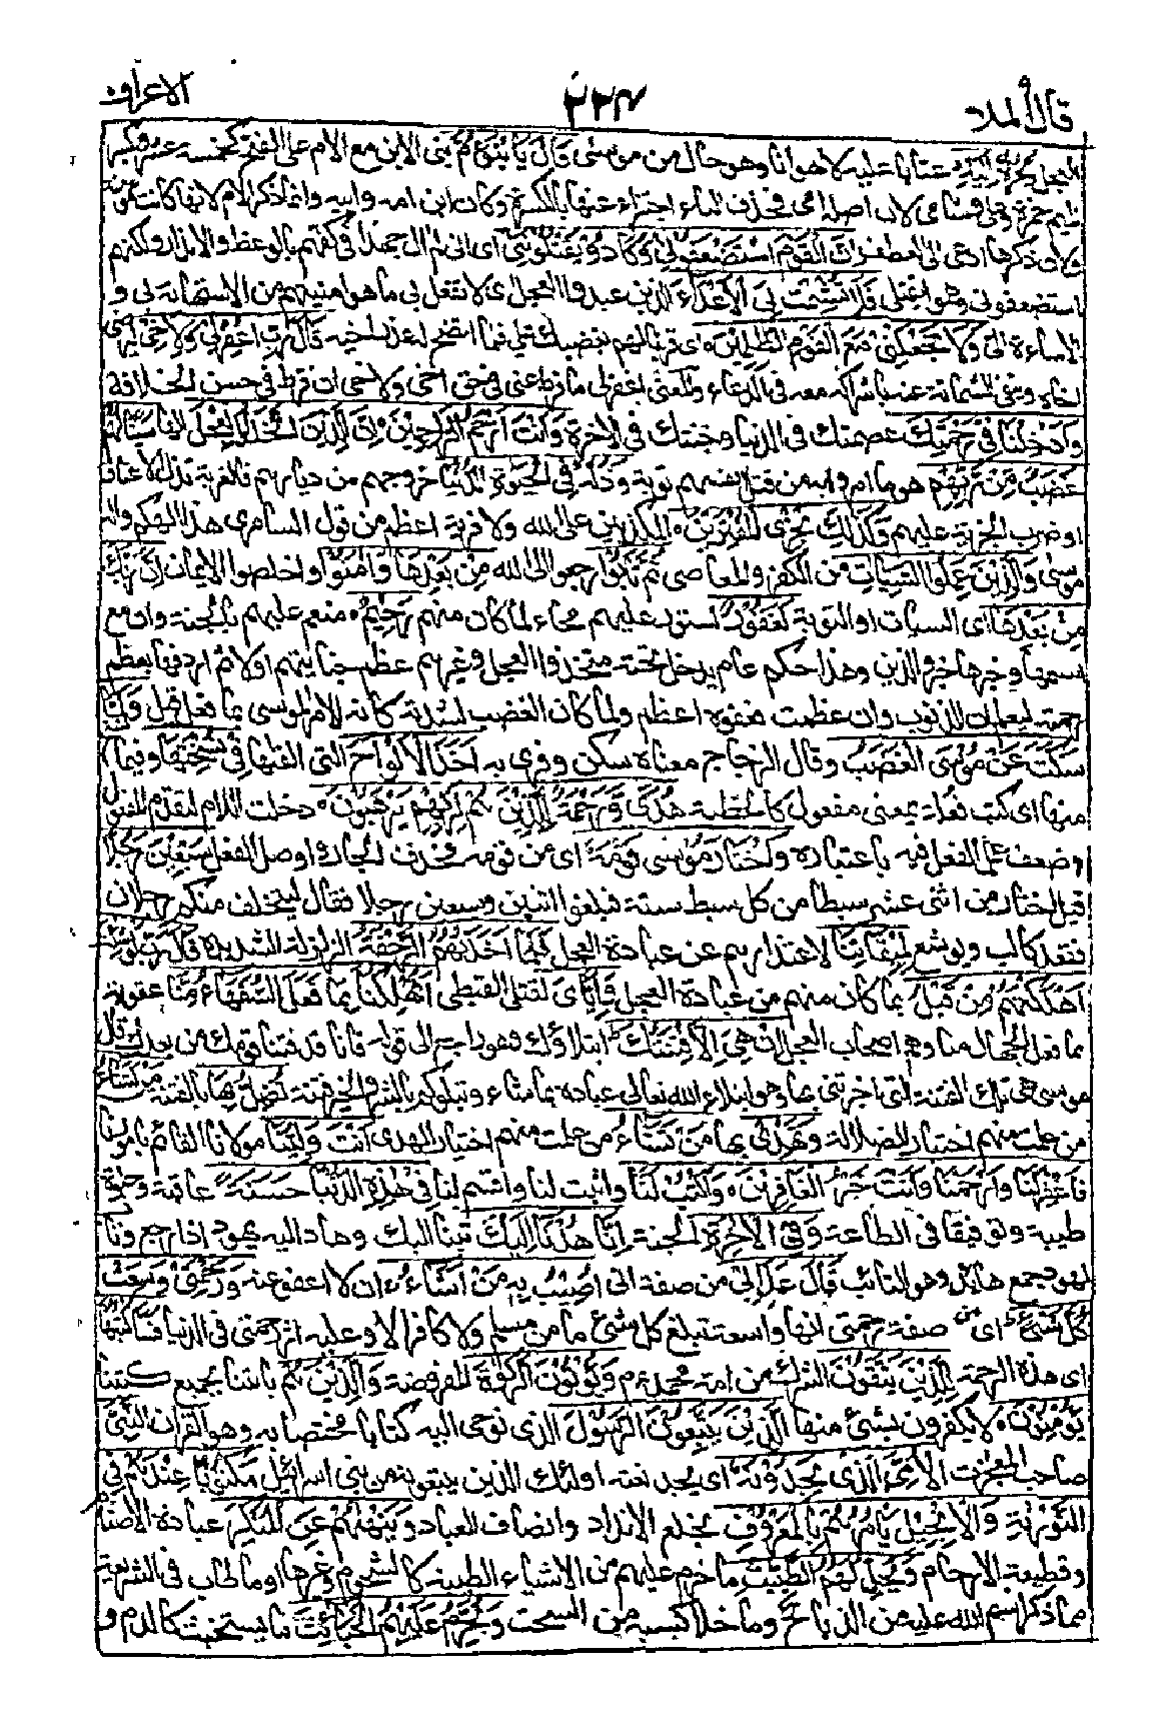 قال الملأ ٣٣٤ الاعراف
العجل يجره اليه عتابا عليه لا هوانا وهو حال من موسى قال يا ابن ام بنى الابن مع الام على الفتح كخمسة عشر وكسر
الميم حمزة وعلى وشامى لان اصله امى فحذف الياء اجتزاء عنها بالكسرة وكان ابن امه وابيه وانما ذكر الام لانها كانت مؤمنة
ولان ذكرها ادعى الى العطف ان القوم استضعفونى وكادوا يقتلوننى اى انى لم آل جهدا فى كفهم بالوعظ والانذار ولكنهم
استضعفونى وهموا بقتلى فلا تشمت بى الاعداء الذين عبدوا العجل اى لا تفعل بى ما هو امنيتهم من الاستهانة بى و
الاساءة الى ولا تجعلنى مع القوم الظلمين ٥ اى قرينا لهم بغضبك على فلما اتضح له عذر اخيه قال رب اغفر لى ولاخى ليرضى
اخاه وينفى الشماتة عنه باشراكه معه فى الدعاء والمعنى اغفر لى ما فرط منى فى حق اخى ولاخى ان فرط فى حسن الخلافة
وادخلنا فى رحمتك عصمتك فى الدنيا وجنتك فى الاخرة وانت ارحم الرحمين ٥ ان الذين اتخذوا العجل الها سينالهم
غضب من ربهم هو ما امروا به من قتل انفسهم توبة وذلة فى الحيوة الدنيا خروجهم من ديارهم فالغربة تذل الاعناق
او ضرب الجزية عليهم وكذلك نجزى المفترين ٥ الكاذبين على الله ولا فرية اعظم من قول السامرى هذا الهكم واله
موسى والذين عملوا السيئات من الكفر والمعاصى ثم تابوا رجعوا الى الله من بعدها وامنوا واخلصوا الايمان ان ربك
من بعدها اى السيئات او التوبة لغفور لستور عليهم محاء لما كان منهم رحيم ٥ منعم عليهم بالجنة وان مع
اسمها وخبرها خبر والذين وهذا حكم عام يدخل تحته متخذوا العجل وغيرهم عظم جنايتهم اولا ثم اردفها بعظم
رحمته ليعلم ان الذنوب وان عظمت فعفوه اعظم ولما كان الغضب لشدته كانه الآمر لموسى بما فعل قيل ولما
سكت عن موسى الغضب وقال الزجاج معناه سكن وقرئ به اخذ الالواح التى القاها وفى نسختها وفيما
منها اى كتب فعلة بمعنى مفعول كالخطبة هدى ورحمة للذين هم لربهم يرهبون ٥ دخلت اللام لتقدم المفعول
وضعف عمل الفعل فيه باعتباره واختار موسى قومه اى من قومه فحذف الجار واوصل الفعل سبعين رجلا
قيل اختار من اثنى عشر سبطا من كل سبط ستة فبلغوا اثنين وسبعين رجلا فقال ليتخلف منكم رجلان
فقعد كالب ويوشع لميقاتنا لاعتذارهم عن عبادة العجل فلما اخذتهم الرجفة الزلزلة الشديدة قال رب لو شئت
اهلكتهم من قبل بما كان منهم من عبادة العجل واياى لقتلى القبطى اتهلكنا بما فعل السفهاء منا عقوبة
بما فعل الجهال منا وهم اصحاب العجل ان هى الا فتنتك ابتلاؤك وهو راجع الى قوله فانا قد فتنا قومك من بعدك قال
موسى هى تلك الفتنة التى اخبرتنى بها وهو ابتلاء الله تعالى عباده بما شاء ونبلوكم بالشر والخير فتنة تضل بها بالفتنة من تشاء
من علمت منهم اختيار الضلالة وتهدى بها من تشاء من علمت منهم اختيار الهدى انت ولينا مولانا القائم بامورنا
فاغفر لنا وارحمنا وانت خير الغافرين ٥ واكتب لنا واثبت لنا واقسم لنا فى هذه الدنيا حسنة عافية وحيوة
طيبة وتوفيقا فى الطاعة وفى الاخرة الجنة انا هدنا اليك تبنا اليك وهاد اليه يهود اذا رجع وتاب
الهود جمع هائد وهو التائب قال عذابى من صفته انى اصيب به من اشاء اى ان لا اعفو عنه ورحمتى وسعت
كل شىء اى من صفة رحمتى انها واسعة تبلغ كل شىء ما من مسلم ولا كافر الا وعليه اثر رحمتى فى الدنيا فساكتبها
اى هذه الرحمة للذين يتقون الشرك من امة محمد ﷺ ويؤتون الزكوة المفروضة والذين هم باياتنا بجميع كتبنا
يؤمنون ٥ لا يكفرون بشىء منها الذين يتبعون الرسول الذى نوحى اليه كتابا مختصا به وهو القرآن النبى
صاحب المعجزات الامى الذى يجدونه اى يجد نعته اولئك الذين يتبعونه من بنى اسرائيل مكتوبا عندهم فى
التورىة والانجيل يامرهم بالمعروف بخلع الانداد وانصاف العباد وينهىهم عن المنكر عبادة الاصنام
وقطيعة الارحام ويحل لهم الطيبت ما حرم عليهم من الاشياء الطيبة كالشحوم وغيرها او ما طاب فى الشريعة
مما ذكر اسم الله عليه من الذبائح وما خلا كسبه من السحت ويحرم عليهم الخبائث ما يستخبث كالدم و